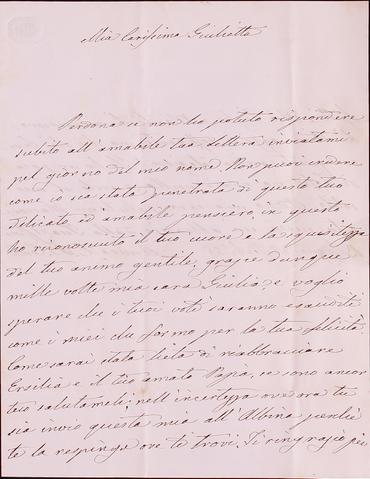 Mia Carissima Giulietta
Perdona se non ho potuto rispondere
subito all'amabile tua lettera inviatami
pel giorno del mio nome. Non puoi credere
come io sia stata penetrata di questo tuo
delicato ed amabile pensiero, in questo
ho riconosciuto il tuo cuore e la squisitezza
del tuo animo gentile; grazie dunque
mille volte mia cara Giulia e voglio
sperare che i tuoi voti saranno esauditi
come i miei che formo per la tua felicità.
Come sarai stata lieta di riabbracciare
Ersilia e il tuo amato Papà, se sono ancor
teco salutameli; nell'incertezza ove ora tu
sia invio questa mia all'Albina perchè
te la respinga ove ti trovi. Ti ringrazio pei